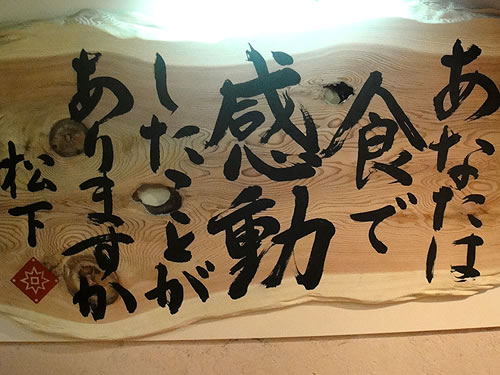 あなたは
食で
感動
したことが
ありますか
松下